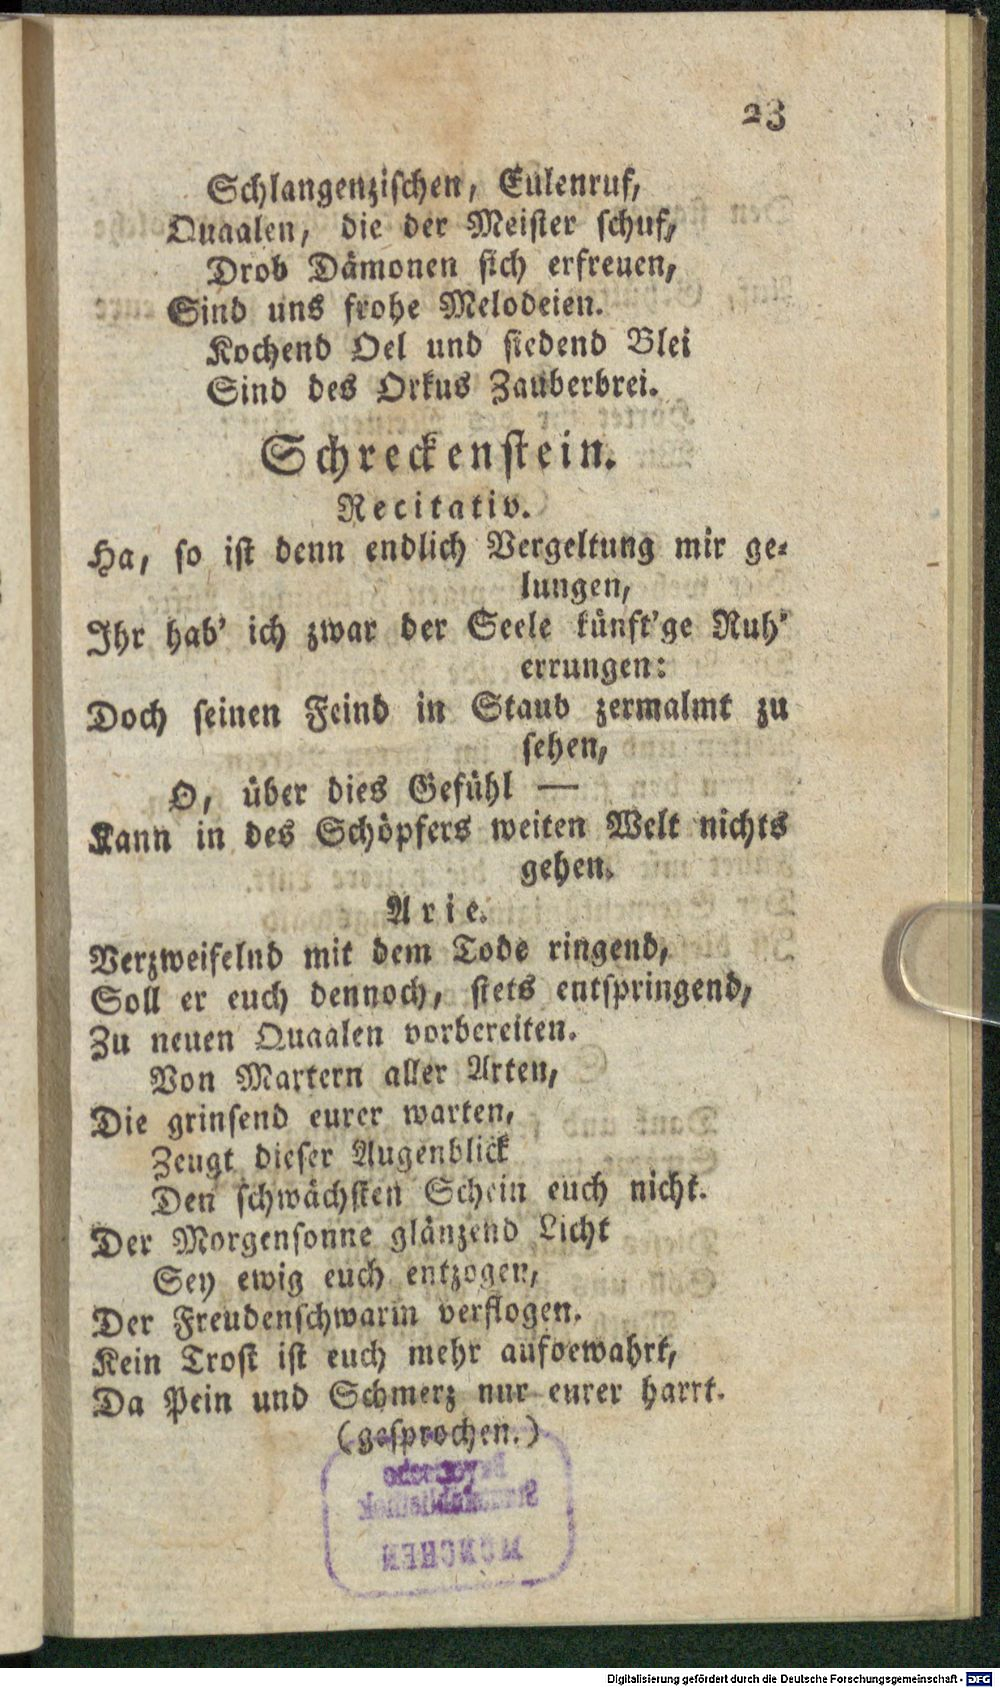 23
Schlangenzischen, Eulenruf,
Quaalen, die der Meister schuf,
Drob Dämonen sich erfreuen,
Sind uns frohe Melodeien.
Kochend Oel und siedend Blei
Sind des Orkus Zauberbrei.
Schreckenstein.
Recitativ.
Ha, so ist denn endlich Vergeltung mir ge-
lungen,
Ihr hab' ich zwar der Seele künft'ge Ruh'
errungen:
Doch seinen Feind in Staub zermalmt zu
sehen,
O, über dies Gefühl —
Kann in des Schöpfers weiten Welt nichts
gehen.
Arie.
Verzweifelnd mit dem Tode ringend,
Soll er euch dennoch, stets entspringend,
Zu neuen Quaalen vorbereiten.
Von Martern aller Arten,
Die grinsend eurer warten,
Zeugt dieser Augenblick
Den schwächsten Schein euch nicht.
Der Morgensonne glänzend Licht
Sey ewig euch entzogen,
Der Freudenschwarm verflogen.
Kein Trost ist euch mehr aufbewahrt,
Da Pein und Schmerz nur eurer harrt.
(gesprochen.)
Bayerische
Staatsbibliothek
MÜNCHEN
Digitalisierung gefördert durch die Deutsche Forschungsgemeinschaft - DFG